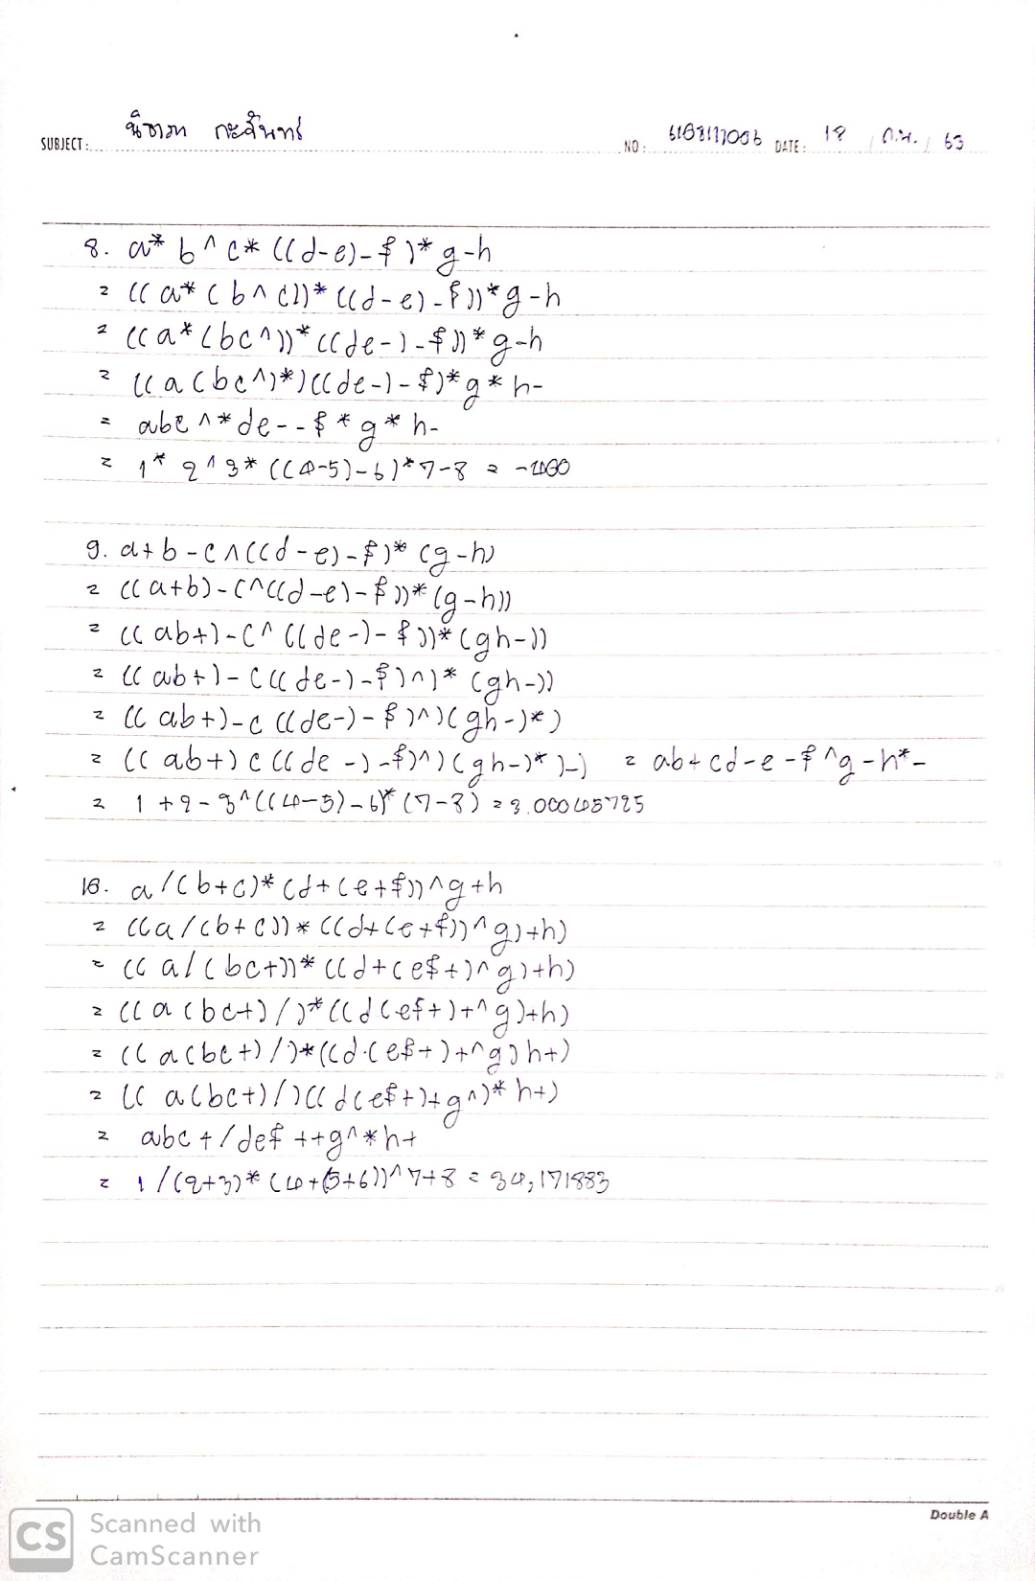 SUBJECT: กะจันทร์ NO: DATE: 18 / ก.พ. / 63
8. a* b ^ c* ((d-e)-f)* g-h
= ((a* (b^c))* ((d-e)-f))* g-h
= ((a* (bc^))* ((de-)-f))* g-h
= ((a(bc^)*)((de-)-f)* g* h-
= abc^*de--f*g*h-
= 1* 2^3* ((4-5)-6)* 7-8 = -400
9. a+b-c^((d-e)-f)* (g-h)
= ((a+b)-(^((d-e)-f))* (g-h))
= ((ab+)-c^((de-)-f))* (gh-))
= ((ab+)-c((de-)-f)^)* (gh-))
= ((ab+)-c((de-)-f)^)(gh-)*)
= ((ab+)c((de-)-f)^)(gh-)*)-) = ab+cd-e-f^g-h*-
= 1+2-3^((4-5)-6)* (7-8) = 3.00045725
10. a/(b+c)* (d+(e+f))^g+h
= ((a/(b+c))* ((d+(e+f))^g)+h)
= ((a/(bc+))* ((d+(ef+)^g)+h)
= ((a(bc+)/)* ((d(ef+)+^g)+h)
= ((a(bc+)/)* ((d(ef+)+^g)h+)
= ((a(bc+)/)((d(ef+)+g^)* h+)
= abc+/def++g^*h+
= 1/(2+3)* (4+(5+6))^7+8 = 34,171883
Double A
CS Scanned with
CamScanner